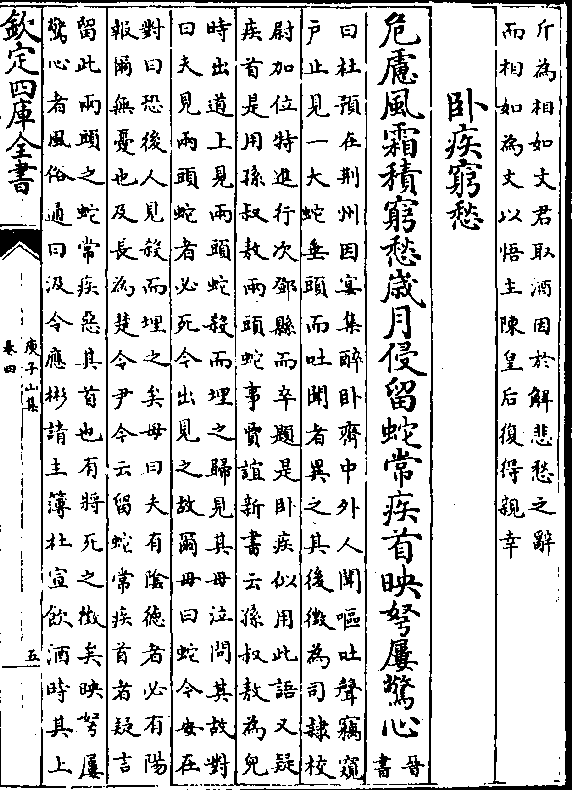 斤為相如文君取酒因於解悲愁之辭
而相如為文以悟主陳皇后復得親幸
卧疾窮愁
危慮風霜積窮愁歲月侵留蛇常疾首映弩屢驚心
晉
書
曰杜預在荆州因宴集醉卧齊中外人聞嘔吐聲竊窺
戸止見一大蛇垂頭而吐聞者異之其後徵為司隷校
尉加位特進行次鄧縣而卒題是卧疾似用此語又疑
疾首是用孫叔敖兩頭蛇事賈誼新書云孫叔敖為兒
時出道上見兩頭蛇殺而埋之歸見其母泣問其故對
曰夫見兩頭蛇者必死今出見之故爾母曰蛇今安在
對曰恐後人見殺而埋之矣母曰夫有隂徳者必有陽
報爾無憂也及長為楚令尹今云留蛇常疾首者疑言
留此兩頭之蛇常疾惡其首也有將死之徴矣映弩屢
驚心者風俗通曰汲令應彬請主簿杜宣飲酒時其上
欽定四庫全書
庾子山集
卷四
五